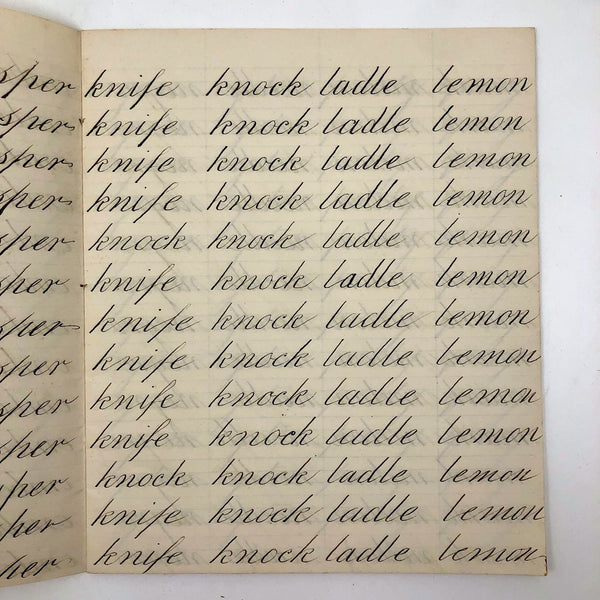 knife knock ladle lemon
knife knock ladle lemon
knife knock ladle lemon
knife knock ladle lemon
knock knock ladle lemon
knife knock ladle lemon
knife knock ladle lemon
knife knock ladle lemon
knife knock ladle lemon
knife knock ladle lemon
knock knock ladle lemon
knife knock ladle lemon
knife knock ladle lemon